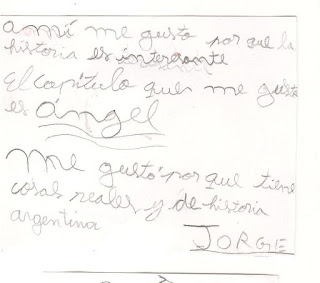 a mí me gustó por que la
historia es interante
El capítulo que me gusto
es ángel
Me gustó por que tiene
cosas reales y de historia
argentina
JORGE